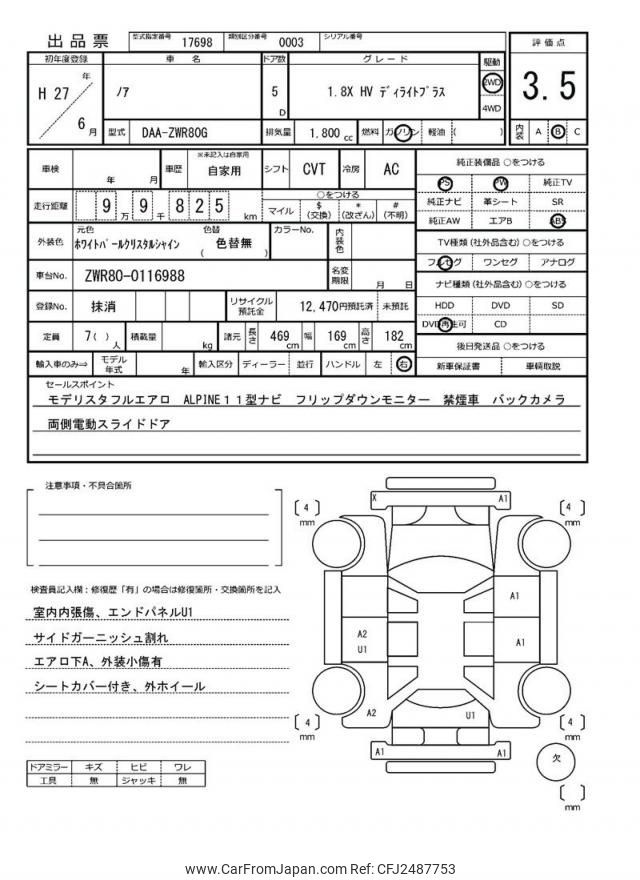 出品票 型式指定番号 17698 類別区分番号 0003 シリアル番号
初年度登録 車名 ドア数 グレード 駆動 評価点
H 27 年 6 月 ノア 5 D 1.8X HV ディライトプラス 2WD 4WD 3.5
型式 DAA-ZWR80G 排気量 1,800 cc 燃料 ガソリン 軽油 ( ) 内装 A B C
車検 年 月 車歴 ※未記入は自家用 自家用 シフト CVT 冷房 AC
走行距離 9 万 9 千 8 2 5 km ○をつける
マイル $ (交換) * (改ざん) # (不明)
外装色 元色 ホワイトパールクリスタルシャイン 色替 ( 色替無 ) カラーNo. 内装色
車台No. ZWR80-0116988 名変期限 月 日
登録No. 抹消 リサイクル預託金 12,470円預託済 未預託
定員 7( )人 積載量 kg 諸元 長さ 469 cm 幅 169 cm 高さ 182 cm
輸入車のみ⇒ モデル年式 年 輸入区分 ディーラー 並行 ハンドル 左 右
純正装備品 ○をつける
PS PW 純正TV
純正ナビ 革シート SR
純正AW エアB ABS
TV種類(社外品含む)○をつける
フルセグ ワンセグ アナログ
ナビ種類(社外品含む)○をつける
HDD DVD SD
DVD再生可 CD
後日発送品 ○をつける
新車保証書 車輌取説
セールスポイント
モデリスタフルエアロ ALPINE11型ナビ フリップダウンモニター 禁煙車 バックカメラ
両側電動スライドドア
注意事項・不具合箇所
検査員記入欄:修復歴「有」の場合は修復箇所・交換箇所を記入
室内内張傷、エンドパネルU1
サイドガーニッシュ割れ
エアロ下A、外装小傷有
シートカバー付き、外ホイール
ドアミラー キズ ヒビ ワレ
工具 無 ジャッキ 無
X A1
[4] mm [4] mm
A1
A2 U1 A1
A2 U1
[4] mm [4] mm
A1 A1
欠
[ ] mm
www.CarFromJapan.com Ref: CFJ2487753